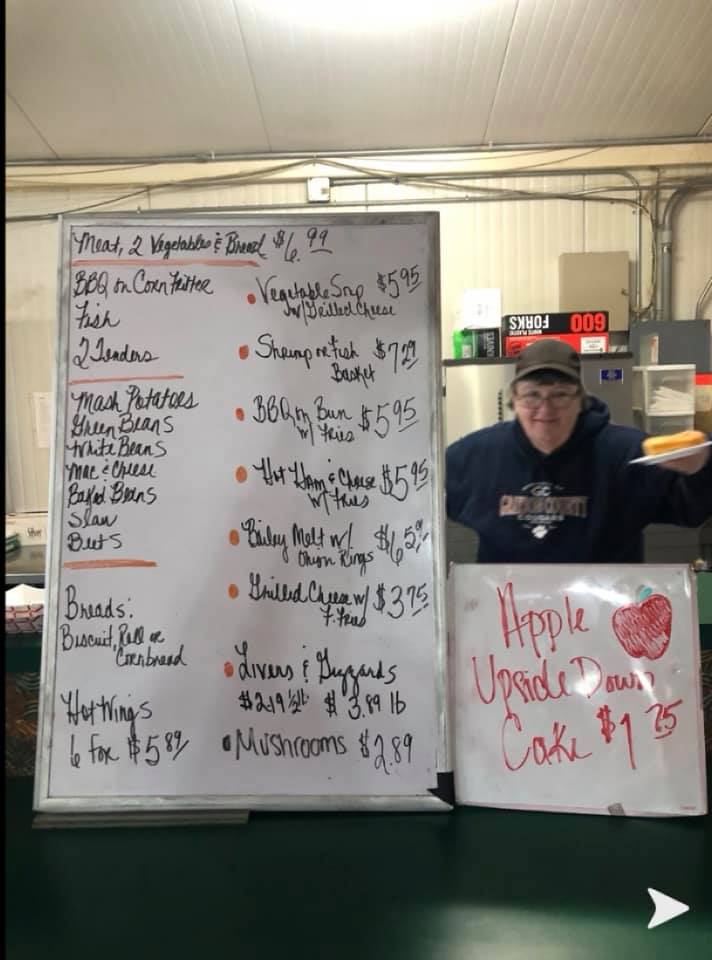 Meat, 2 Vegetables & Bread $6.99
BBQ on Corn Frittee
Fish
2 Tenders
Mash Potatoes
Green Beans
White Beans
Mac & Cheese
Baked Beans
Slaw
Beets
Breads:
Biscuit, Roll or
Cornbread
Hot Wings
6 For $5.89
Vegetable Soup $5.95
w/ Grilled Cheese
Shrimp or Fish $7.29
Basket
BBQ on Bun $5.95
w/ Fries
Hot Ham & Cheese $5.95
w/ Fries
Bailey Melt w/
Onion Rings
Grilled Cheese w/ $3.75
F. Fries
Livers & Guzzards
$2.19 ½ lb $3.89 lb
Mushrooms $2.89
600
FORKS
COUNTY
COUGARS
Apple
Upside Down
Cake $1.75